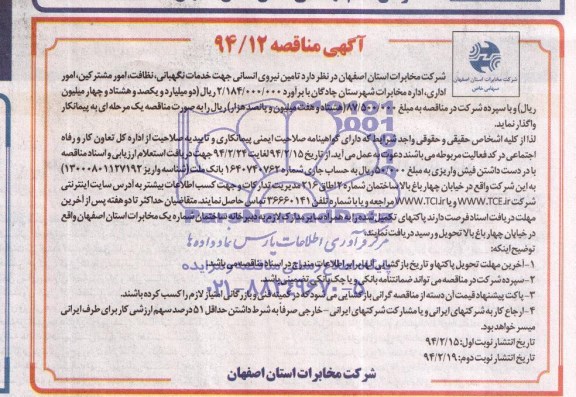 آگهی مناقصه ۹۴/۱۲
شرکت مخابرات استان اصفهان
سهامی خاص
شرکت مخابرات استان اصفهان در نظر دارد تامین نیروی انسانی جهت خدمات نگهبانی، نظافت، امور مشترکین، امور
اداری، اداره مخابرات شهرستان چادگان با برآورد ۲/۱۸۴/۰۰۰/۰۰۰ ریال (دو میلیارد و یکصد و هشتاد و چهار میلیون
ریال) و با سپرده شرکت در مناقصه به مبلغ ۸۷/۵۰۰/۰۰۰ (هشتاد و هفت میلیون و پانصد هزار) ریال را به صورت مناقصه یک مرحله ای به پیمانکار
واگذار نماید.
لذا از کلیه اشخاص حقیقی و حقوقی واجد شرایط که دارای گواهینامه صلاحیت ایمنی پیمانکاری و تایید به صلاحیت از اداره کل تعاون کار و رفاه
اجتماعی در کد فعالیت مربوطه می باشند دعوت به عمل می آید. از تاریخ ۹۴/۲/۱۵ لغایت ۹۴/۲/۲۴ جهت دریافت استعلام ارزیابی و اسناد مناقصه
با در دست داشتن فیش واریزی به مبلغ ریال به حساب جاری شماره بانک ملت (شناسه واریز ۱۳۰۰۰۸۰۱۱۲۷۱۹۲)
به این شرکت واقع در خیابان چهار باغ بالا ساختمان شماره ۲ اطاق ۲۱۶ مدیریت تدارکات و جهت کسب اطلاعات بیشتر به آدرس سایت اینترنتی
شرکت WWW.TCE.ir و یا WWW.TCI.ir مراجعه و یا با شماره تلفن ۳۶۶۶۰۱۴۱ تماس حاصل نمایند. متقاضیان حداکثر تا دو هفته پس از آخرین
مهلت دریافت اسناد فرصت دارند پاکتهای تکمیل شده را به همراه سایر مدارک لازم به دبیرخانه ساختمان شماره یک مخابرات استان اصفهان واقع
در خیابان چهار باغ بالا تحویل و رسید دریافت نمایند.
توضیح اینکه:
۱- آخرین مهلت تحویل پاکتها و تاریخ بازگشایی آنها برابر اطلاعات مندرج در اسناد مناقصه می باشد.
۲- سپرده شرکت در مناقصه می تواند ضمانتنامه بانکی و یا چک بانکی تضمینی باشد.
۳- پاکت پیشنهاد قیمت آن دسته از مناقصه گرانی بازگشایی می شود که در کمیته فنی و بازرگانی امتیاز لازم را کسب کرده باشند.
۴- ارجاع کار به شرکتهای ایرانی و یا مشارکت شرکتهای ایرانی - خارجی صرفاً به شرط داشتن حداقل ۵۱ درصد سهم ارزشی کار برای طرف ایرانی
میسر خواهد بود.
تاریخ انتشار نوبت اول: ۹۴/۲/۱۵
تاریخ انتشار نوبت دوم: ۹۴/۲/۱۹
شرکت مخابرات استان اصفهان
مرکز فرآوری اطلاعات پارس نماد داده ها
۰۲۱-۸۸۳۴۹۶۷۰-۵